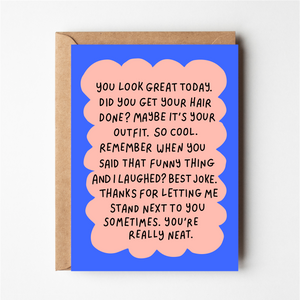 YOU LOOK GREAT TODAY.
DID YOU GET YOUR HAIR
DONE? MAYBE IT'S YOUR
OUTFIT. SO COOL.
REMEMBER WHEN YOU
SAID THAT FUNNY THING
AND I LAUGHED? BEST JOKE.
THANKS FOR LETTING ME
STAND NEXT TO YOU
SOMETIMES. YOU'RE
REALLY NEAT.